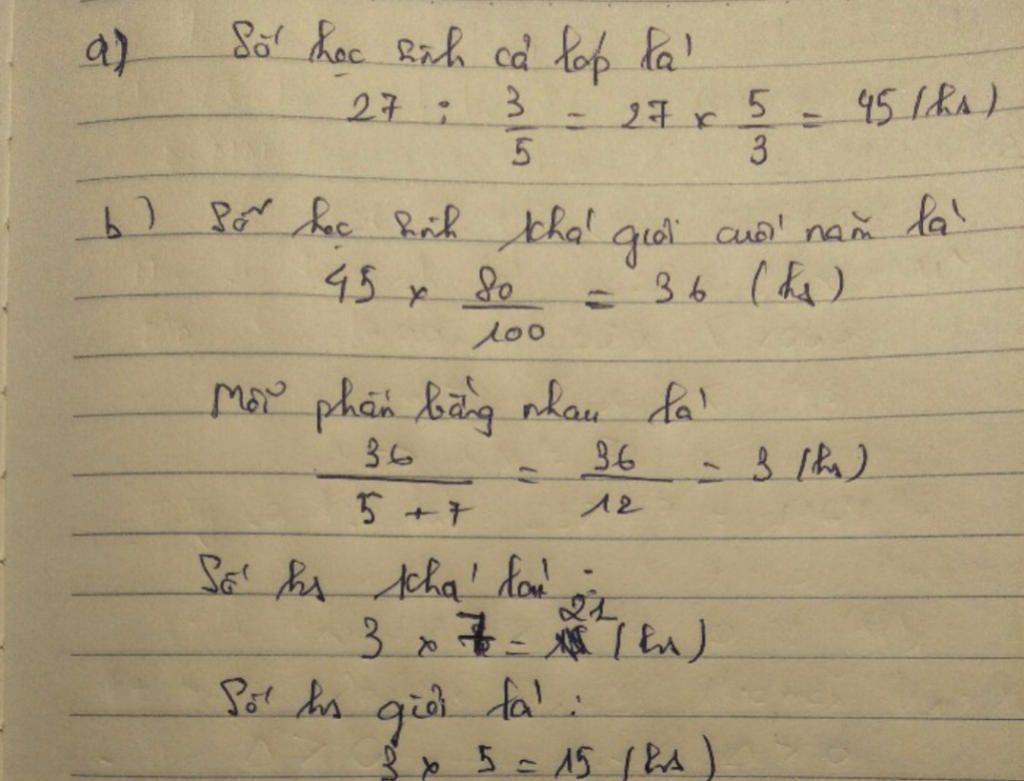 a) Số học sinh cả lớp là
27 : 3/5 = 27 x 5/3 = 45 (hs)
b) Số học sinh khá giỏi cuối năm là
45 x 80/100 = 36 (hs)
Mỗi phần bằng nhau là
36/5+7 = 36/12 = 3 (hs)
Số hs khá là :
3 x 7 = 21 (hs)
Số hs giỏi là :
3 x 5 = 15 (hs)